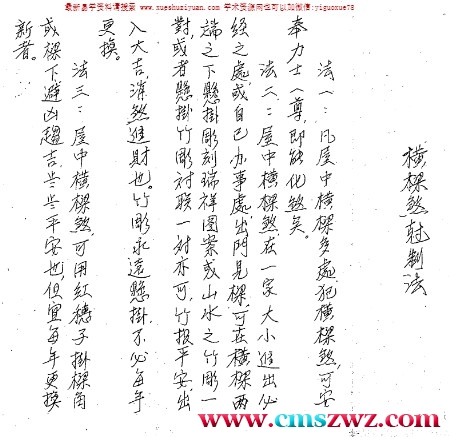 最新易学资料请搜索 www.xueshuziyuan.com 学术资源网也可以加微信:yiguoxue78
橫樑煞射制法
法一：凡屋中橫樑多處犯橫樑煞，可安
奉力士一尊，即能化煞矣。
法二：屋中橫樑煞在一家大小進出必
經之處，或自己办事處，出門見樑，可在橫樑兩
端之下懸掛彫刻瑞祥圖案或山水之竹彫一
對，或者懸掛竹彫对联一对亦可，竹报平安，出
入大吉，消煞進財也。竹彫永遠懸掛，不必每年
更換。
法三：屋中橫樑煞，可用紅穗子掛樑角
或樑下，避凶趨吉，
平安也，但宜每年更換
新者。
www.cmszwz.com